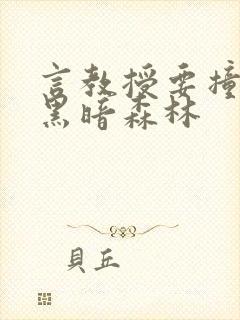 言教授要撞
黑暗森林
貝丘